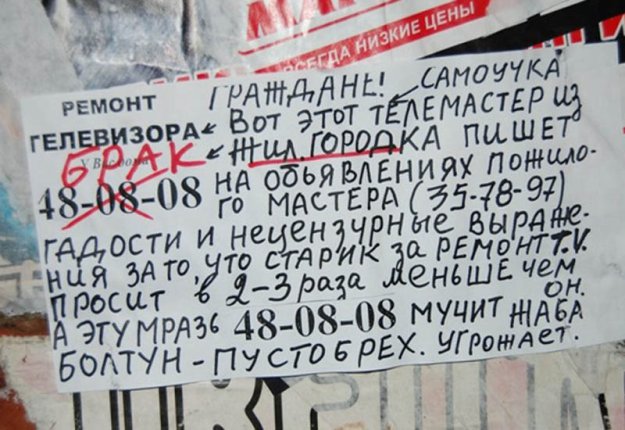 ВСЕГДА НИЗКИЕ ЦЕНЫ
РЕМОНТ
ТЕЛЕВИЗОРА
У Вас дома
БРАК
48-08-08
ГРАЖДАНЕ! САМОУЧКА
ВОТ ЭТОТ ТЕЛЕМАСТЕР ИЗ
ЖИЛ.ГОРОДКА ПИШЕТ
НА ОБЪЯВЛЕНИЯХ ПОЖИЛО-
ГО МАСТЕРА (35-78-97)
ГАДОСТИ И НЕЦЕНЗУРНЫЕ ВЫРАЖЕ-
НИЯ ЗА ТО, ЧТО СТАРИК ЗА РЕМОНТ T.V.
ПРОСИТ В 2-3 РАЗА МЕНЬШЕ ЧЕМ ОН.
А ЭТУ МРАЗЬ 48-08-08 МУЧИТ ЖАБА
БОЛТУН - ПУСТОБРЕХ. УГРОЖАЕТ.